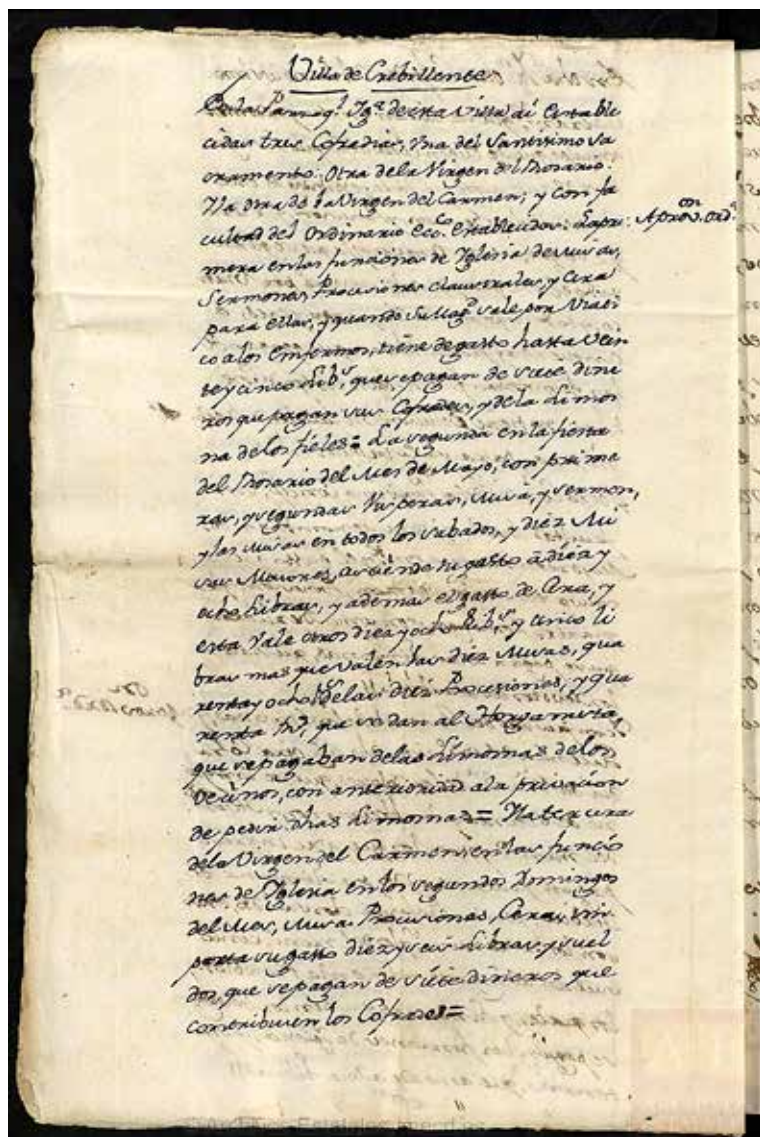 Villa de Crebillente
En la Parroql. Yga. de esta Villa ai estable
cidas tres Cofradias, Una del Santisimo Sa
cramento. Otra de la Virgen del Rosario.
Y la otra de la Virgen del Carmen; y con fa
cultad del Ordinario ecco. establecidas: La pri:
Aprovon. ordo.
mera en las funciones de Yglesia de Misas,
Sermones, Procesiones claustrales, y Cera
para ellas, y quando Su Magd. sale por Viati
co a los enfermos, tiene de gasto hasta Vein
te y cinco Libs. que se pagan de siete dine
ros que pagan sus Cofrades, y de la Limos
na de los fieles = La segunda en la fiesta
del Rosario del Mes de Mayo, con prime
ras, y segundas Visperas, Misa, y sermon,
y las Misas en todos los sabados, y diez Mi
sas Maiores, asciende su gasto a diez y
ocho Libras, y ademas el gasto de Cera, y
esta Vale otros diez y ocho Libs. y cinco li
bras mas que valen las diez Misas, qua
renta y ocho de las diez Procesiones, y qua
renta que se dan al Horganista,
que se pagaban de las Limosnas de los
Vecinos, con anterioridad a la privacion
de pedir dhas Limosnas = Y la tercera
de la Virgen del Carmen en las funcio
nes de Yglesia en los segundos Domingos
del Mes, Misa Procesiones, Cera, im
porta su gasto diez y seis Libras y suel
dos, que se pagan de siete dineros que
contribuien los Cofrades =